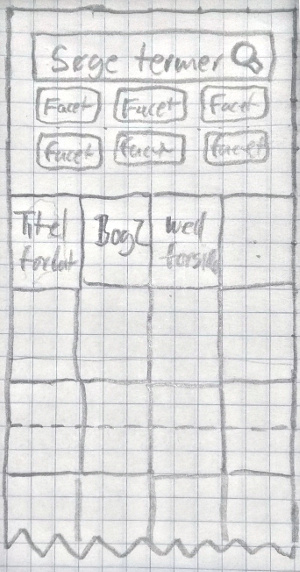 Søge termer
Facet Facet Facet
Facet Facet Facet
Titel Bog2 med
forfat forside